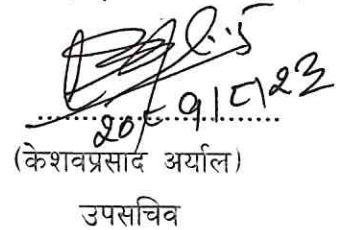 २०८१।८।२३
(केशवप्रसाद अर्याल)
उपसचिव